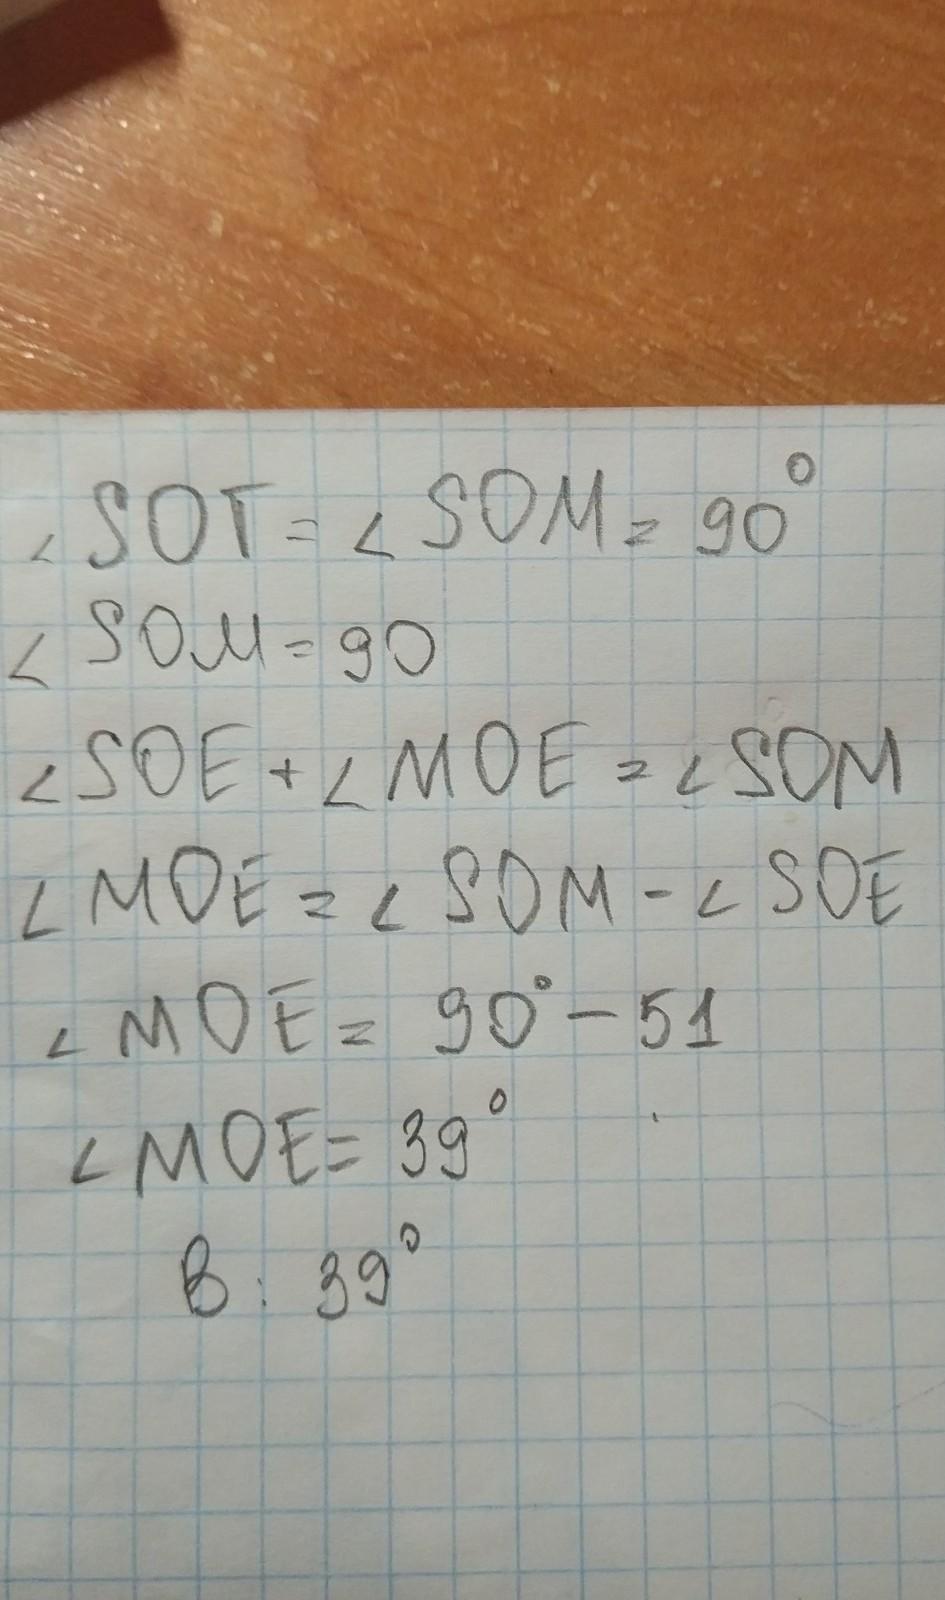 ∠SOT = ∠SOM = 90°
∠SOM = 90
∠SOE + ∠MOE = ∠SOM
∠MOE = ∠SOM - ∠SOE
∠MOE = 90° - 51
∠MOE = 39°
В: 39°